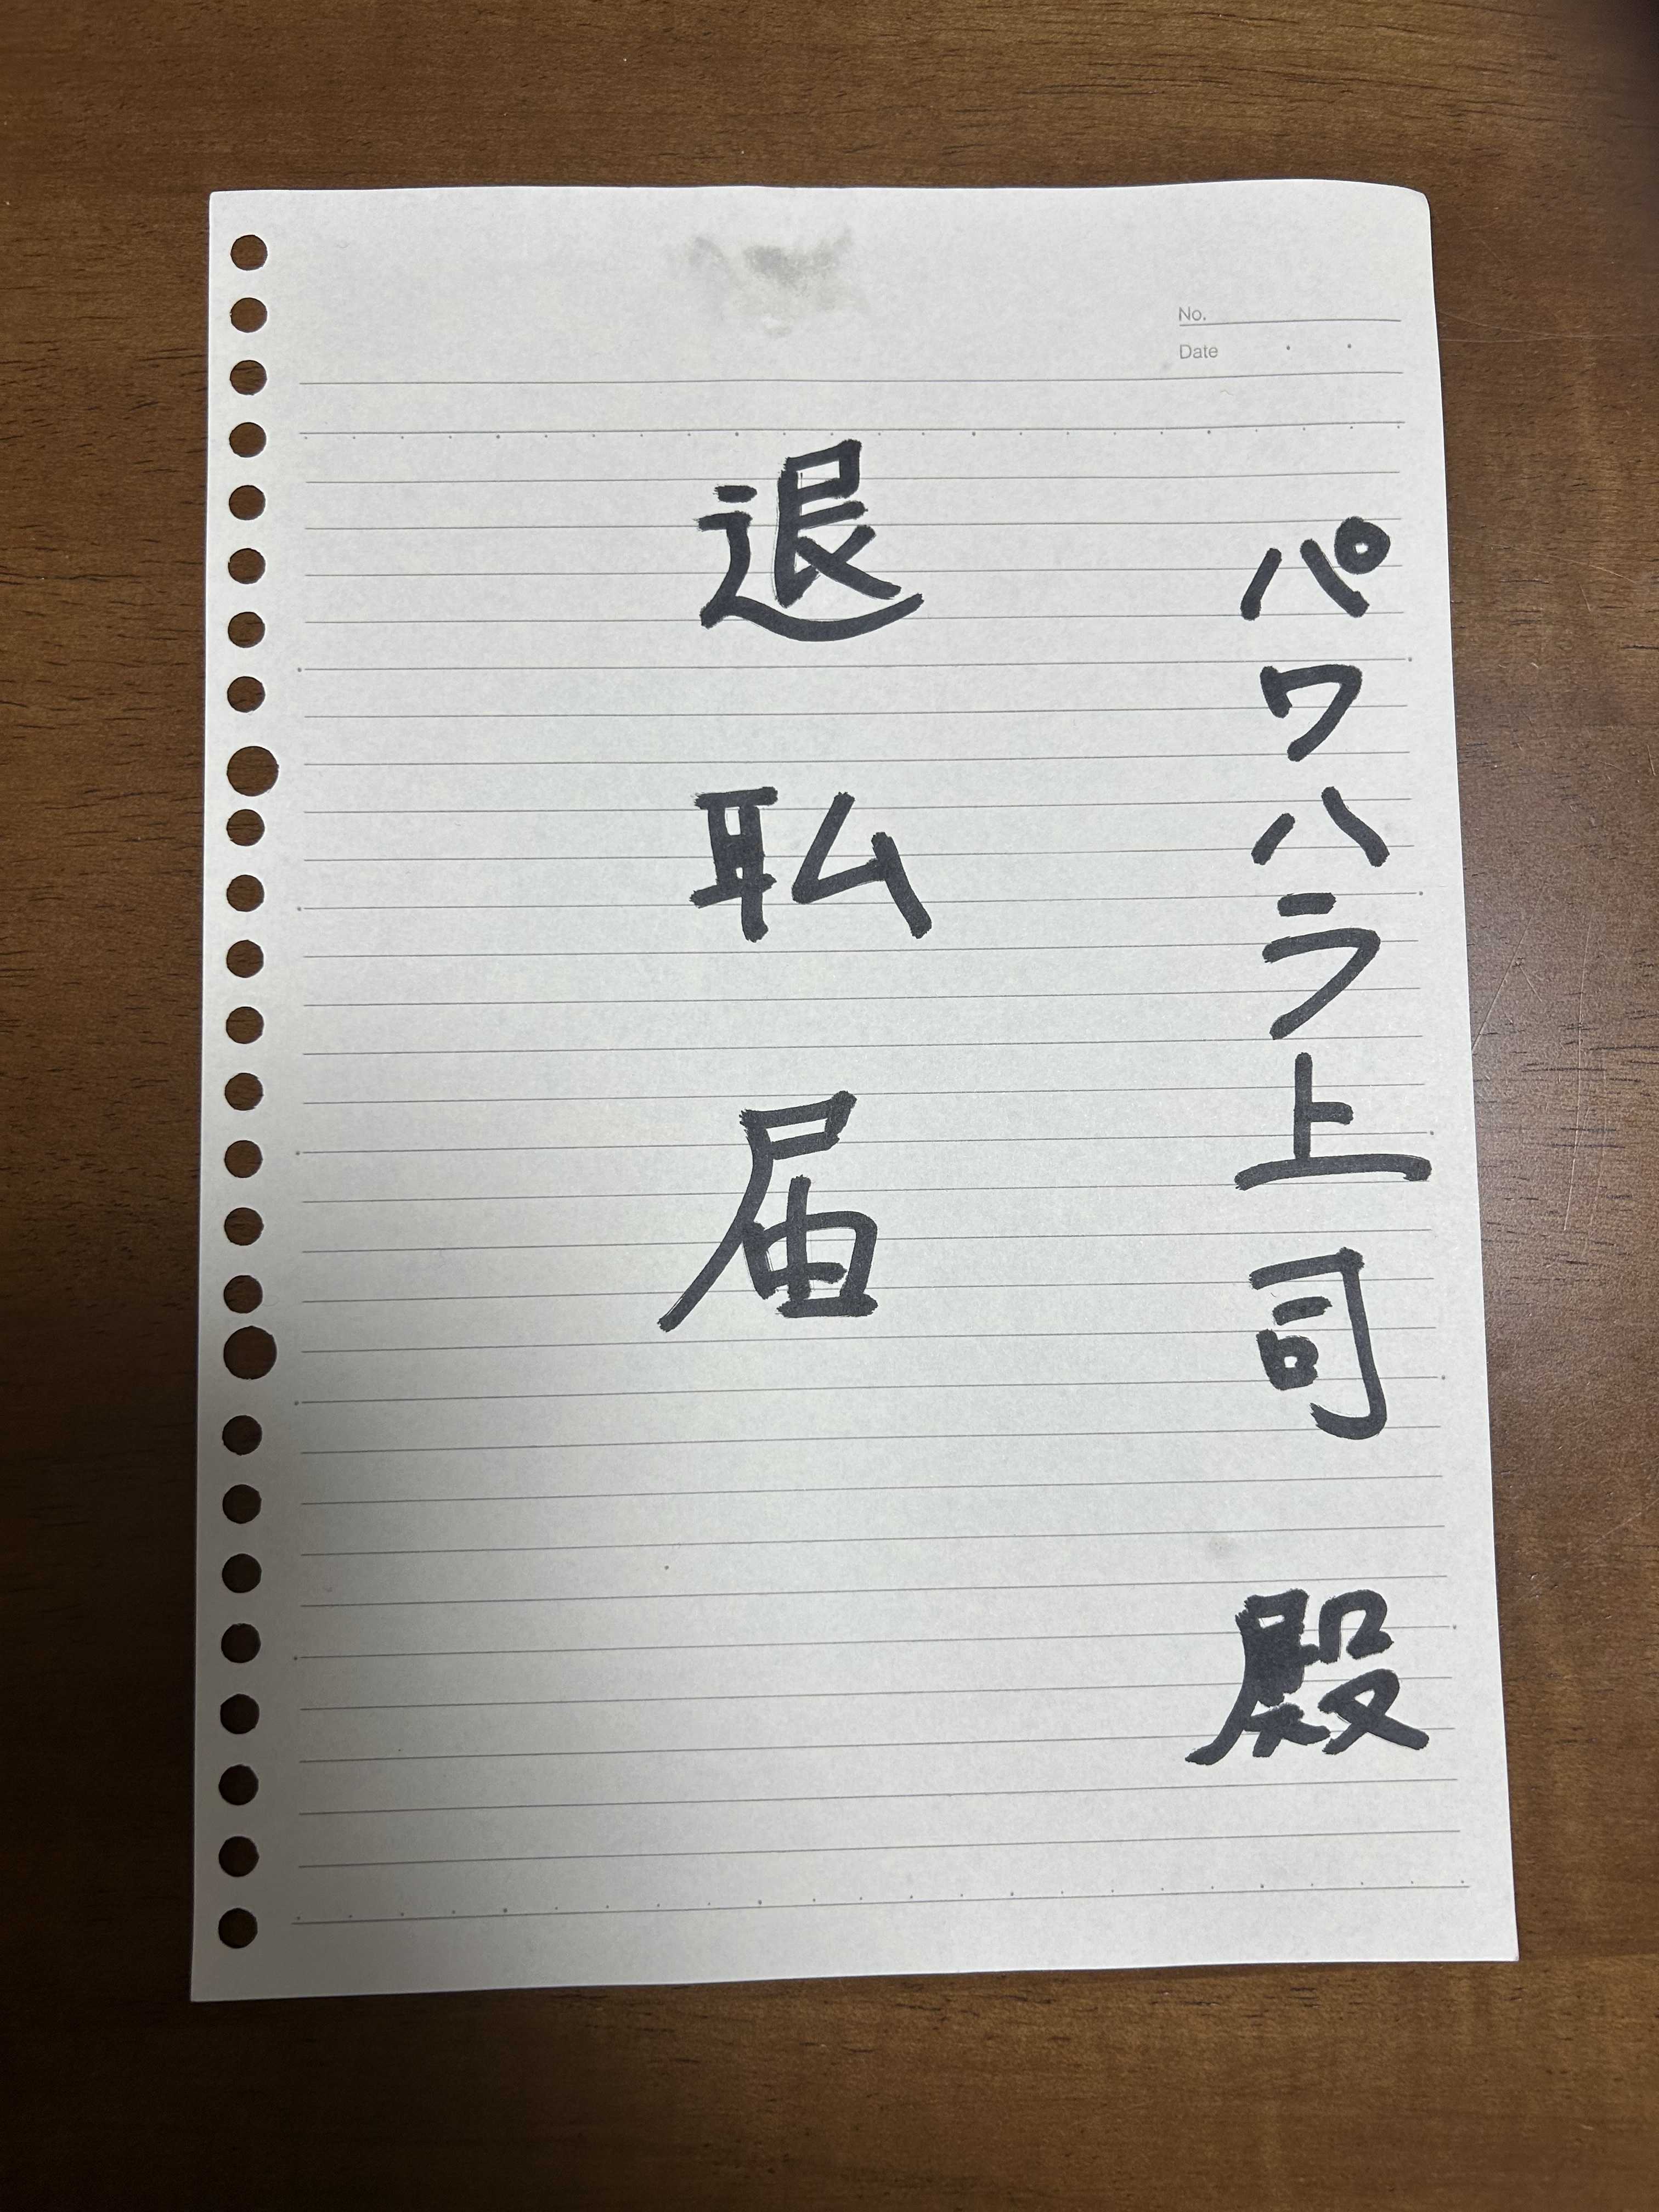 No.
Date
パワハラ上司 殿
退職届